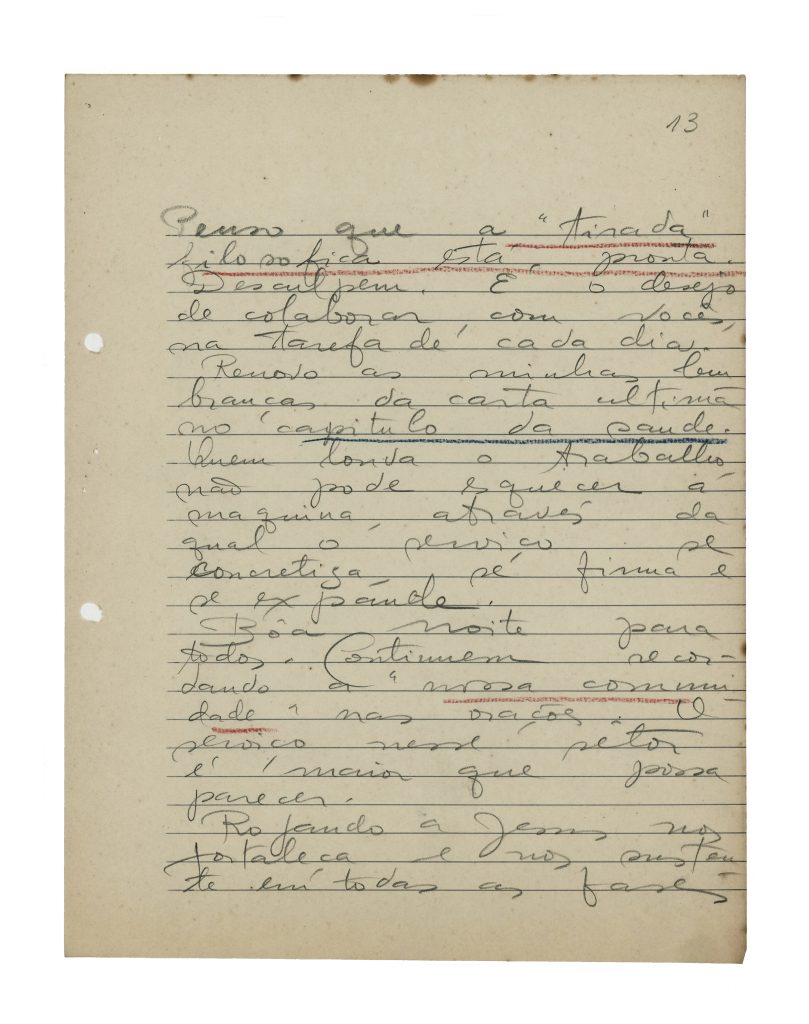 13
Penso que a "tirada"
filosofica está pronta.
Desculpem. É o desejo
de colaborar com vocês,
na tarefa de cada dia.
Renovo as minhas lem
brancas da carta ultima
no capitulo da saude.
Quem louva o trabalho
não pode esquecer a
maquina através da
qual o serviço se
concretiza, se firma e
se expande.
Bôa noite para
todos. Continuem recor-
dando a "nossa communi-
dade" nas orações. O
serviço nesse setor
é maior que possa
parecer.
Rogando a Jesus nos
fortaleca e nos susten
te em todas as fases